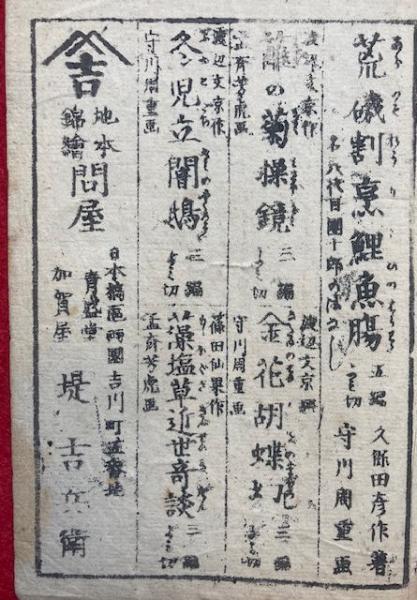 荒磯割烹鯉魚腸 五編 久保田彦作著
名八代目團十郎のはなし よみ切 守川周重画
渡辺文京作
籬の菊操鏡 三編 よみ切
孟斎芳虎画
渡辺文京作
冬児立闇鴟 三編 よみ切
守川周重画
渡辺文京綴
金花胡蝶 三編 よみ切
守川周重画
篠田仙果作
藻塩草近世奇談 三編 よみ切
孟斎芳虎画
吉
地本
錦繪
問屋
日本橋區両國吉川町五番地
青盛堂
加賀屋
堤吉兵衛